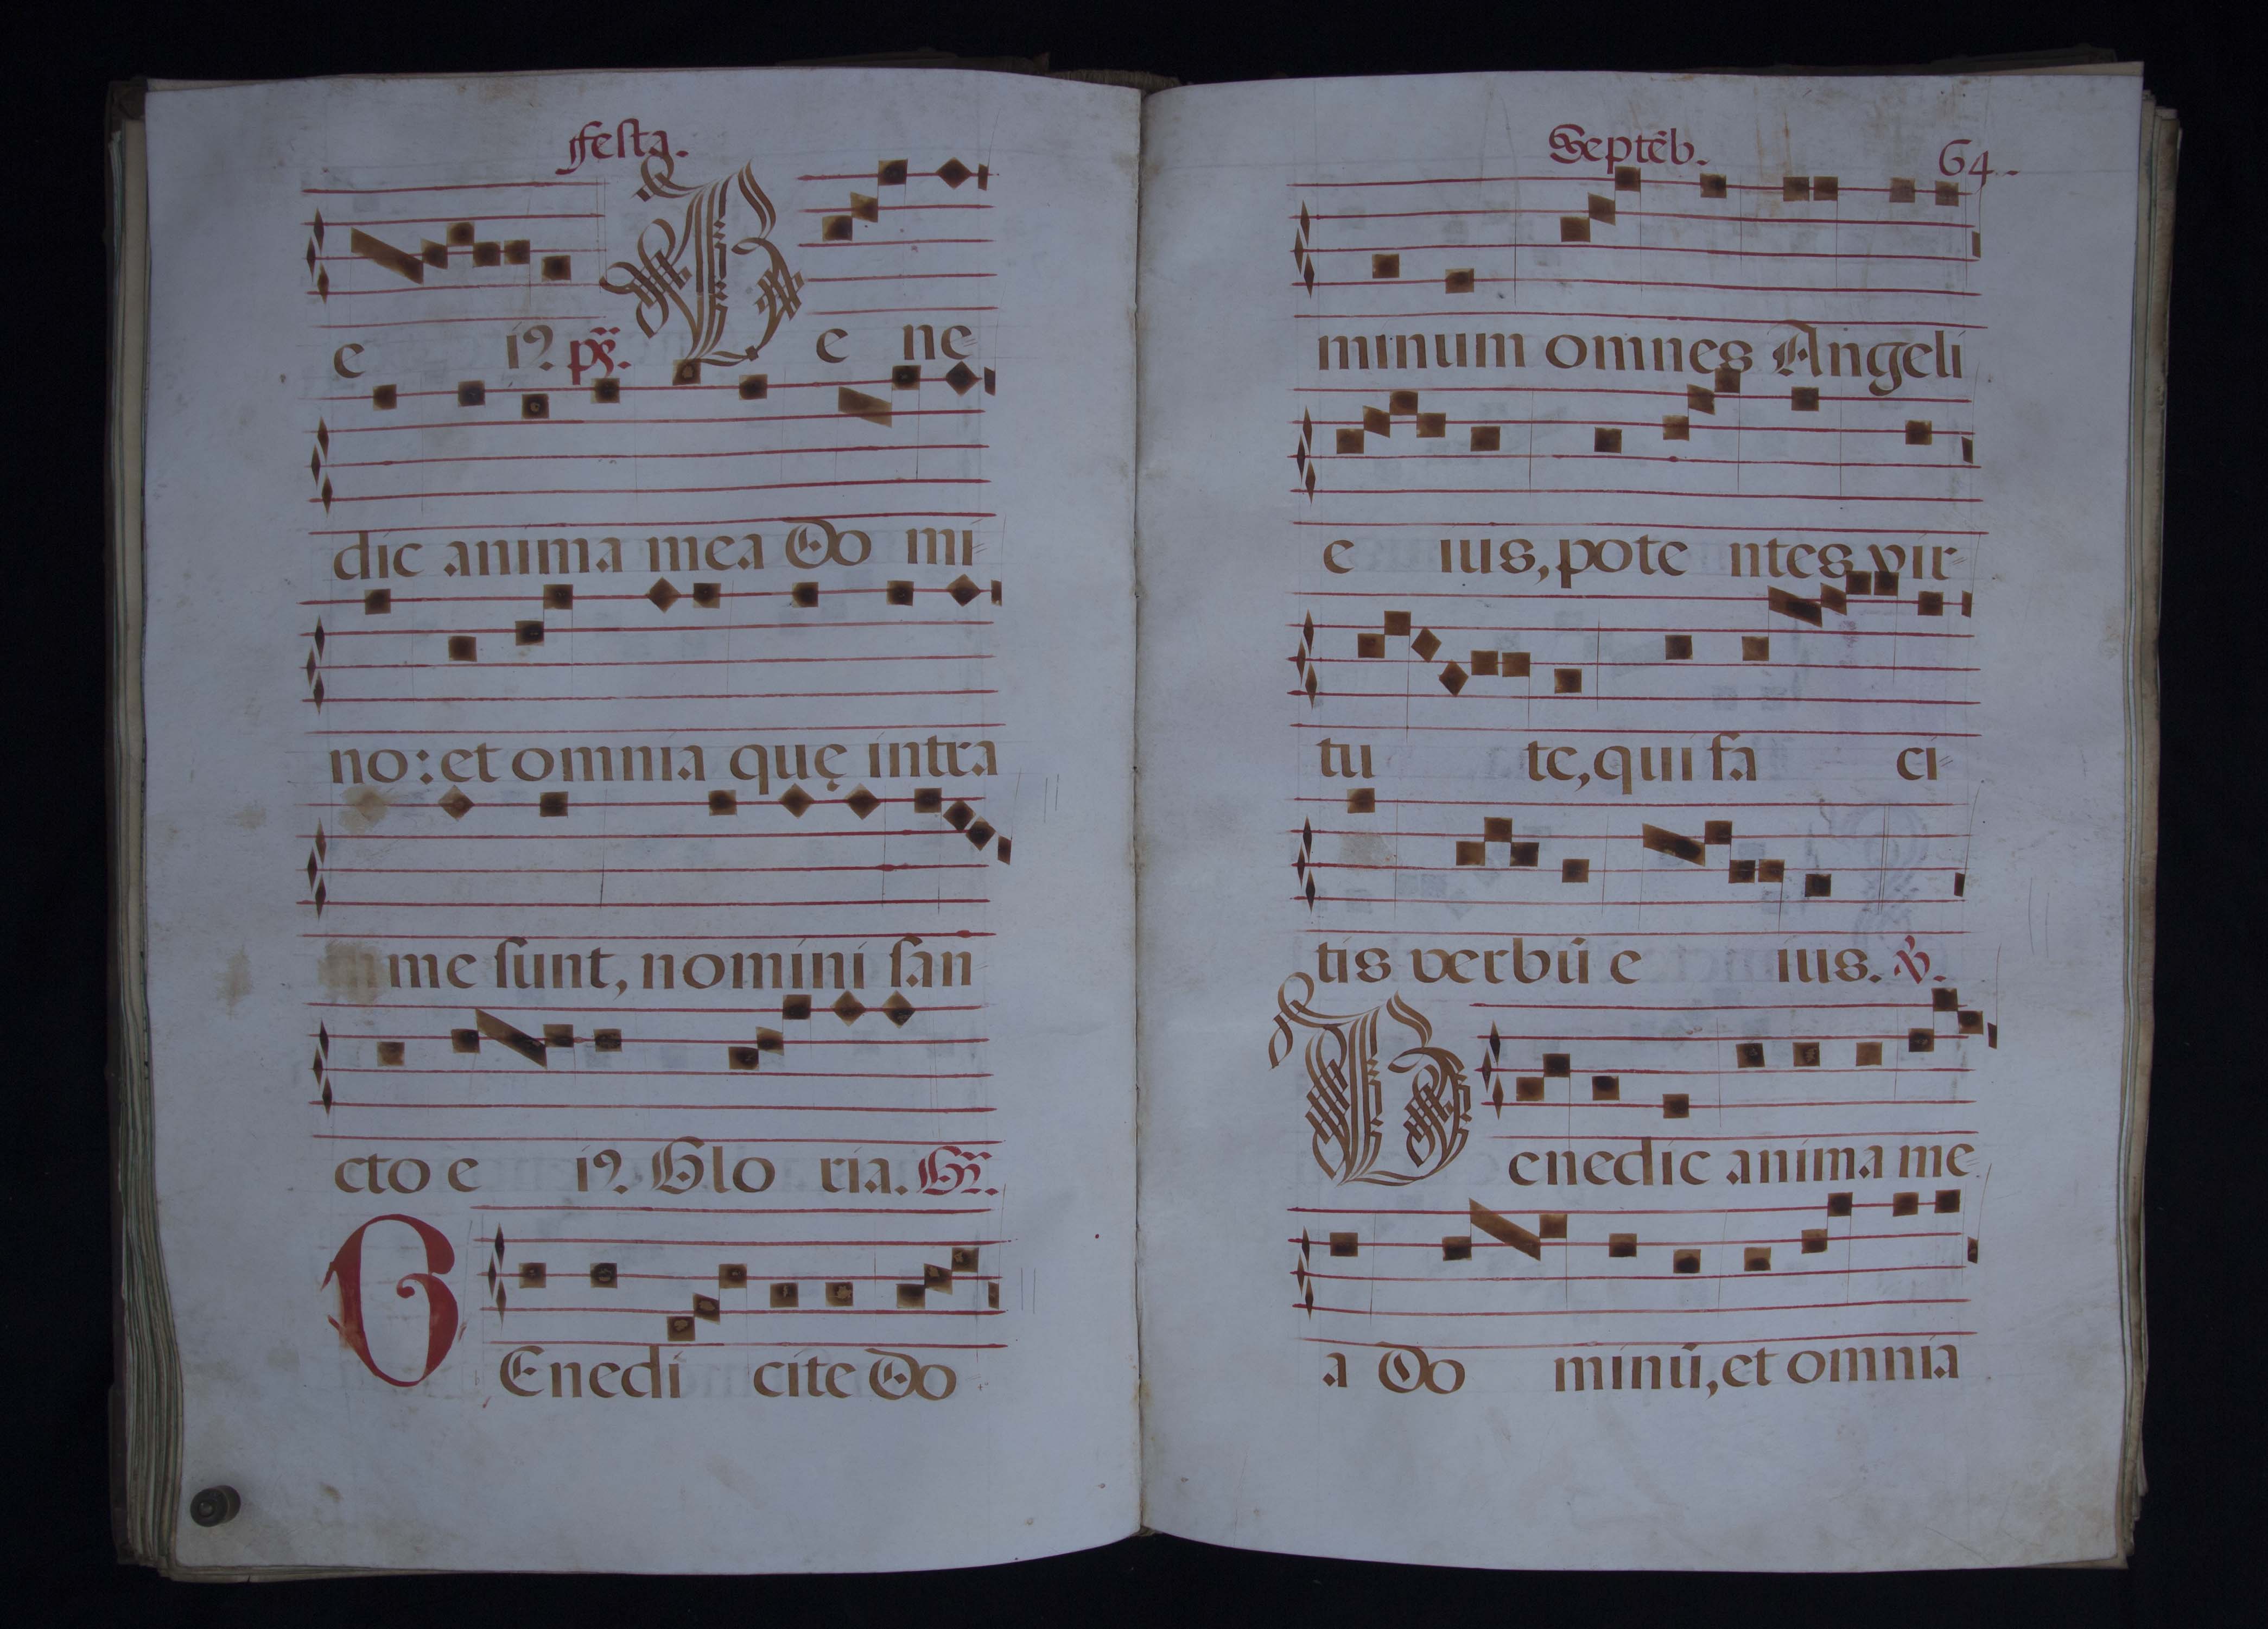 Festa.
e i9. ps. B e ne=
dic anima mea Do mi=
no: et omnia quę intra
me sunt, nomini san
cto e i9. Glo ria. Gr.
B Enedi cite Do
Septẽb. 64.
minum omnes Angeli
e ius, pote ntes vir=
tu te, qui fa ci=
tis verbũ e ius. ℣.
B enedic anima me=
a Do minũ, et omnia